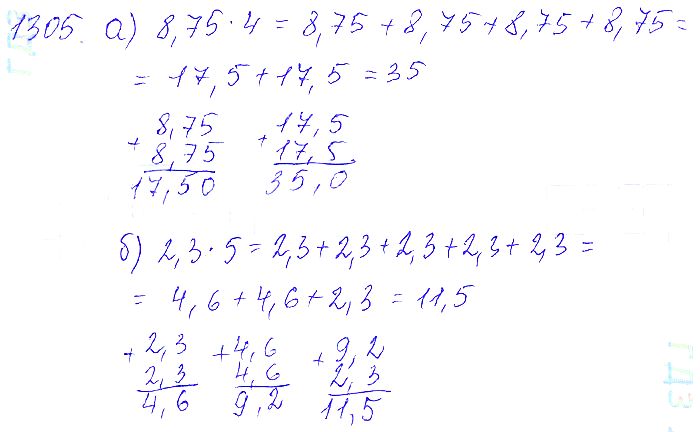 1305. а) 8,75 · 4 = 8,75 + 8,75 + 8,75 + 8,75 =
= 17,5 + 17,5 = 35
+ 8,75 + 17,5
8,75 17,5
17,50 35,0
б) 2,3 · 5 = 2,3 + 2,3 + 2,3 + 2,3 + 2,3 =
= 4,6 + 4,6 + 2,3 = 11,5
+ 2,3 + 4,6 + 9,2
2,3 4,6 2,3
4,6 9,2 11,5
ГДЗ